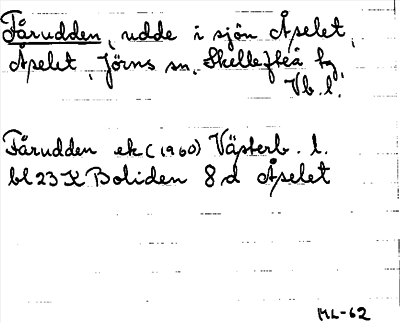 Fårudden, udde i sjön Åselet,
Åselet, Jörns sn, Skellefteå tg,
Vb. l.
Fårudden ek (1960) Västerb. l.
bl 23 K Boliden 8 d Åselet
ML-62